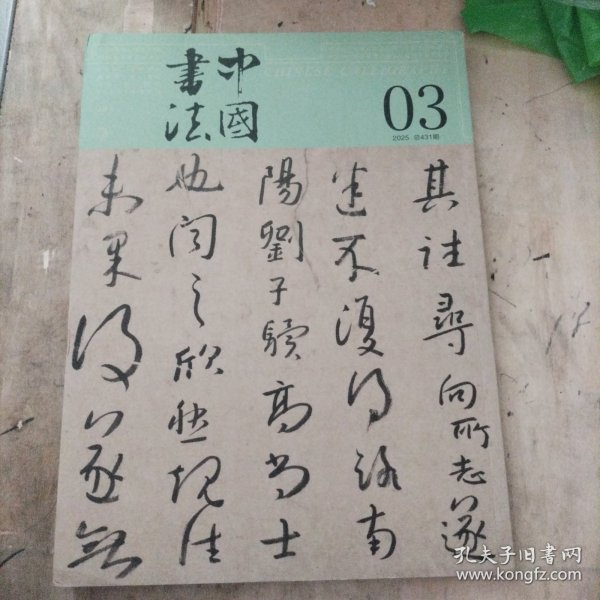 中國
書法
CHINESE CALLIGRAPHY
03
2025 总431期
其往尋向所志遂
迷不復得路南
陽劉子驥高尚士
也聞之欣然規往
未果後遂無
孔夫子旧书网
www.kongfz.com